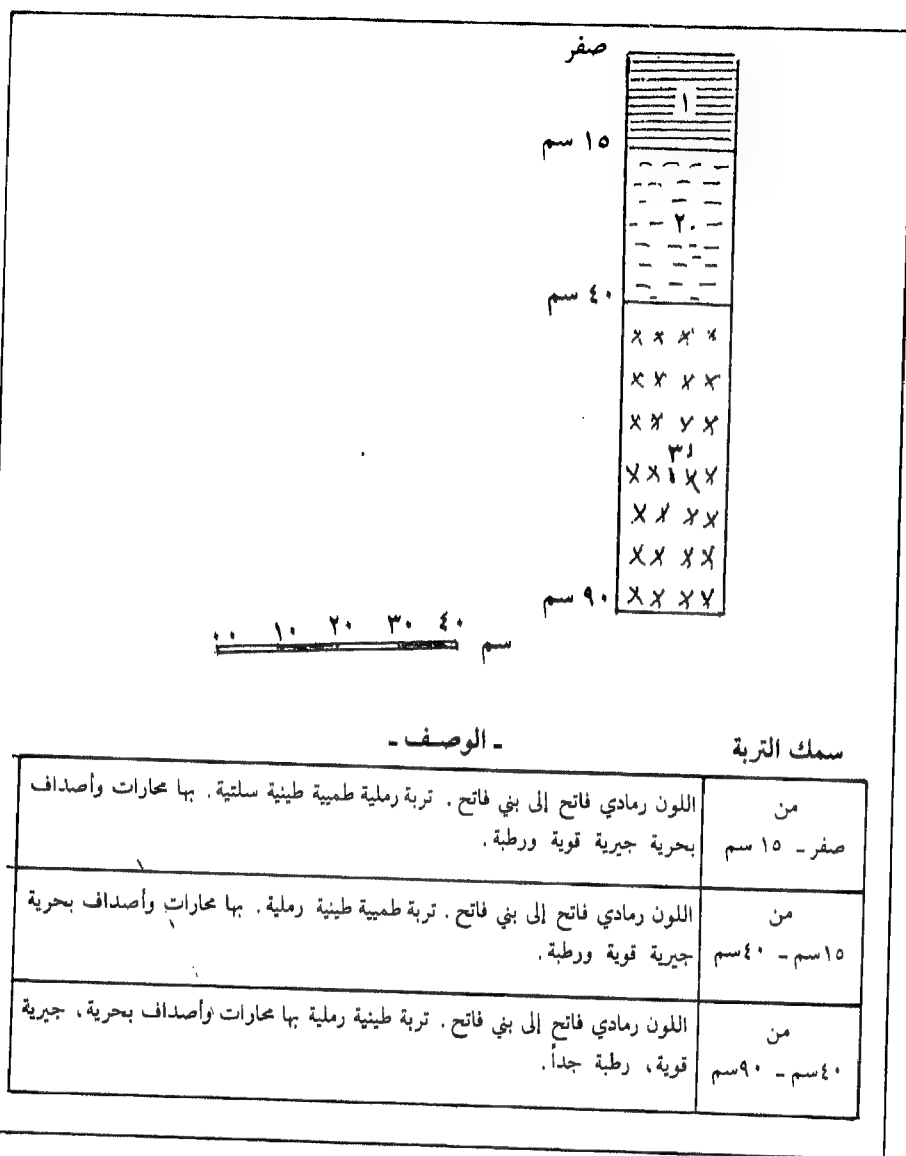 صفر
١
١٥ سم
٢٠
٤٠ سم
٣
٩٠ سم
٠٠ ١٠ ٢٠ ٣٠ ٤٠
سم
سمك التربة
ـ الوصف ـ
من
صفر ـ ١٥ سم
اللون رمادي فاتح إلى بني فاتح. تربة رملية طميية طينية سلتية. بها محارات وأصداف
بحرية جيرية قوية ورطبة.
من
١٥سم ـ ٤٠سم
اللون رمادي فاتح إلى بني فاتح. تربة طميية طينية رملية. بها محارات وأصداف بحرية
جيرية قوية ورطبة.
من
٤٠سم ـ ٩٠سم
اللون رمادي فاتح إلى بني فاتح. تربة طينية رملية بها محارات وأصداف بحرية، جيرية
قوية، رطبة جداً.